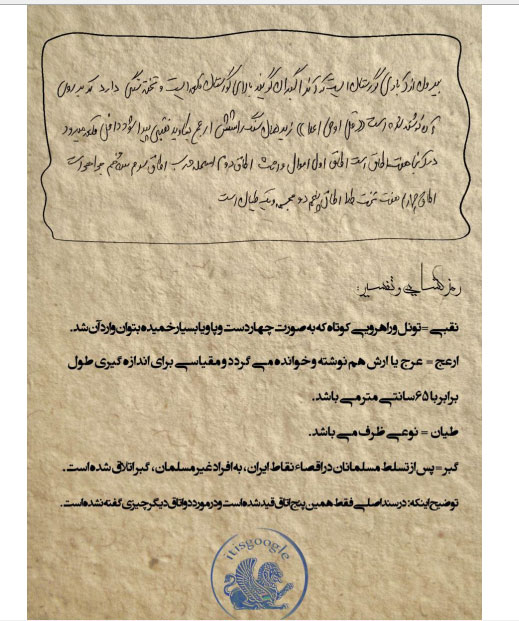 بیرون از آبادی گورستان است که آنرا گبران گویند بالای گورستان تخته سنگی دارد که بر روی
آن نوشته است زیر همان سنگ را شش ارعج بکاوید نقبی پیدا شود داخل نقب میرود
در آنجا هفت اطاق است اطاق اول اموال و اطاق دوم اسلحه اطاق سوم جواهر است
اطاق چهارم هفت تخت طلا اطاق پنجم دو مجسمه و یک طیان است
رمزگشایی و تفسیر:
نقبی = تونل وراهرویی کوتاه که به صورت چهاردست وپا ویا بسیار خمیده بتوان وارد آن شد.
ارعج = عرج یا ارش هم نوشته و خوانده می گردد و مقیاسی برای اندازه گیری طول
برابر با ۶۵ سانتی متر می باشد.
طیان = نوعی ظرف می باشد.
گبر = پس از تسلط مسلمانان در اقصاء نقاط ایران، به افراد غیر مسلمان، گبر اتلاق شده است.
توضیح اینکه: در سند اصلی فقط همین پنج اتاق قید شده است و در مورد دو اتاق دیگر چیزی گفته نشده است.
itisgoogle